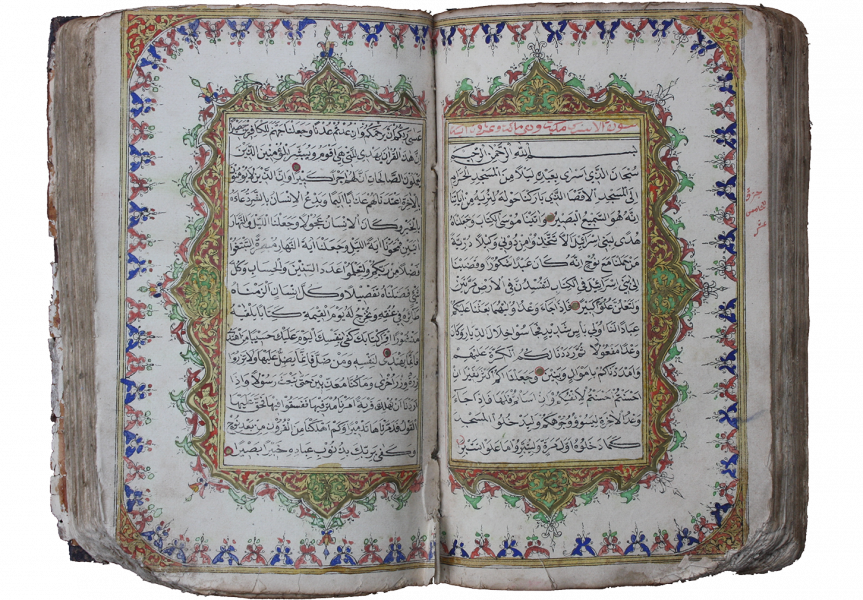 بسم الله الرحمن الرحيم
سبحان الذي اسرى بعبده ليلا من المسجد الحرام
الى المسجد الاقصا الذي باركنا حوله لنريه من اياتنا
انه هو السميع البصير واتينا موسى الكتاب وجعلناه
هدى لبني اسرائيل الا تتخذوا من دوني وكيلا ذرية
من حملنا مع نوح انه كان عبدا شكورا وقضينا
الى بني اسرائيل في الكتاب لتفسدن في الارض مرتين
ولتعلن علوا كبيرا فاذا جاء وعد اوليهما بعثنا عليكم
عبادا لنا اولي باس شديد فجاسوا خلال الديار وكان
وعدا مفعولا ثم رددنا لكم الكرة عليهم
وامددناكم باموال وبنين وجعلناكم اكثر نفيرا ان
احسنتم احسنتم لانفسكم وان اساتم فلها فاذا جاء
وعد الاخرة ليسوؤا وجوهكم وليدخلوا المسجد
كما دخلوه اول مرة وليتبروا ما علوا تتبيرا
عسى ربكم ان يرحمكم وان عدتم عدنا وجعلنا جهنم للكافرين حصيرا
ان هذا القران يهدي للتي هي اقوم ويبشر المؤمنين الذين
يعملون الصالحات ان لهم اجرا كبيرا وان الذين لا يؤمنون
بالاخرة اعتدنا لهم عذابا اليما ويدع الانسان بالشر دعاءه
بالخير وكان الانسان عجولا وجعلنا الليل والنهار
ايتين فمحونا اية الليل وجعلنا اية النهار مبصرة لتبتغوا
فضلا من ربكم ولتعلموا عدد السنين والحساب وكل
شئ فصلناه تفصيلا وكل انسان الزمناه
طائره في عنقه ونخرج له يوم القيمة كتابا يلقيه
منشورا اقرا كتابك كفى بنفسك اليوم عليك حسيبا من اهتدى
فانما يهتدي لنفسه ومن ضل فانما يضل عليها ولا تزر
وازرة وزر اخرى وما كنا معذبين حتى نبعث رسولا واذا
اردنا ان نهلك قرية امرنا مترفيها ففسقوا فيها فحق عليها
القول فدمرناها تدميرا وكم اهلكنا من القرون من بعد نوح
وكفى بربك بذنوب عباده خبيرا بصيرا